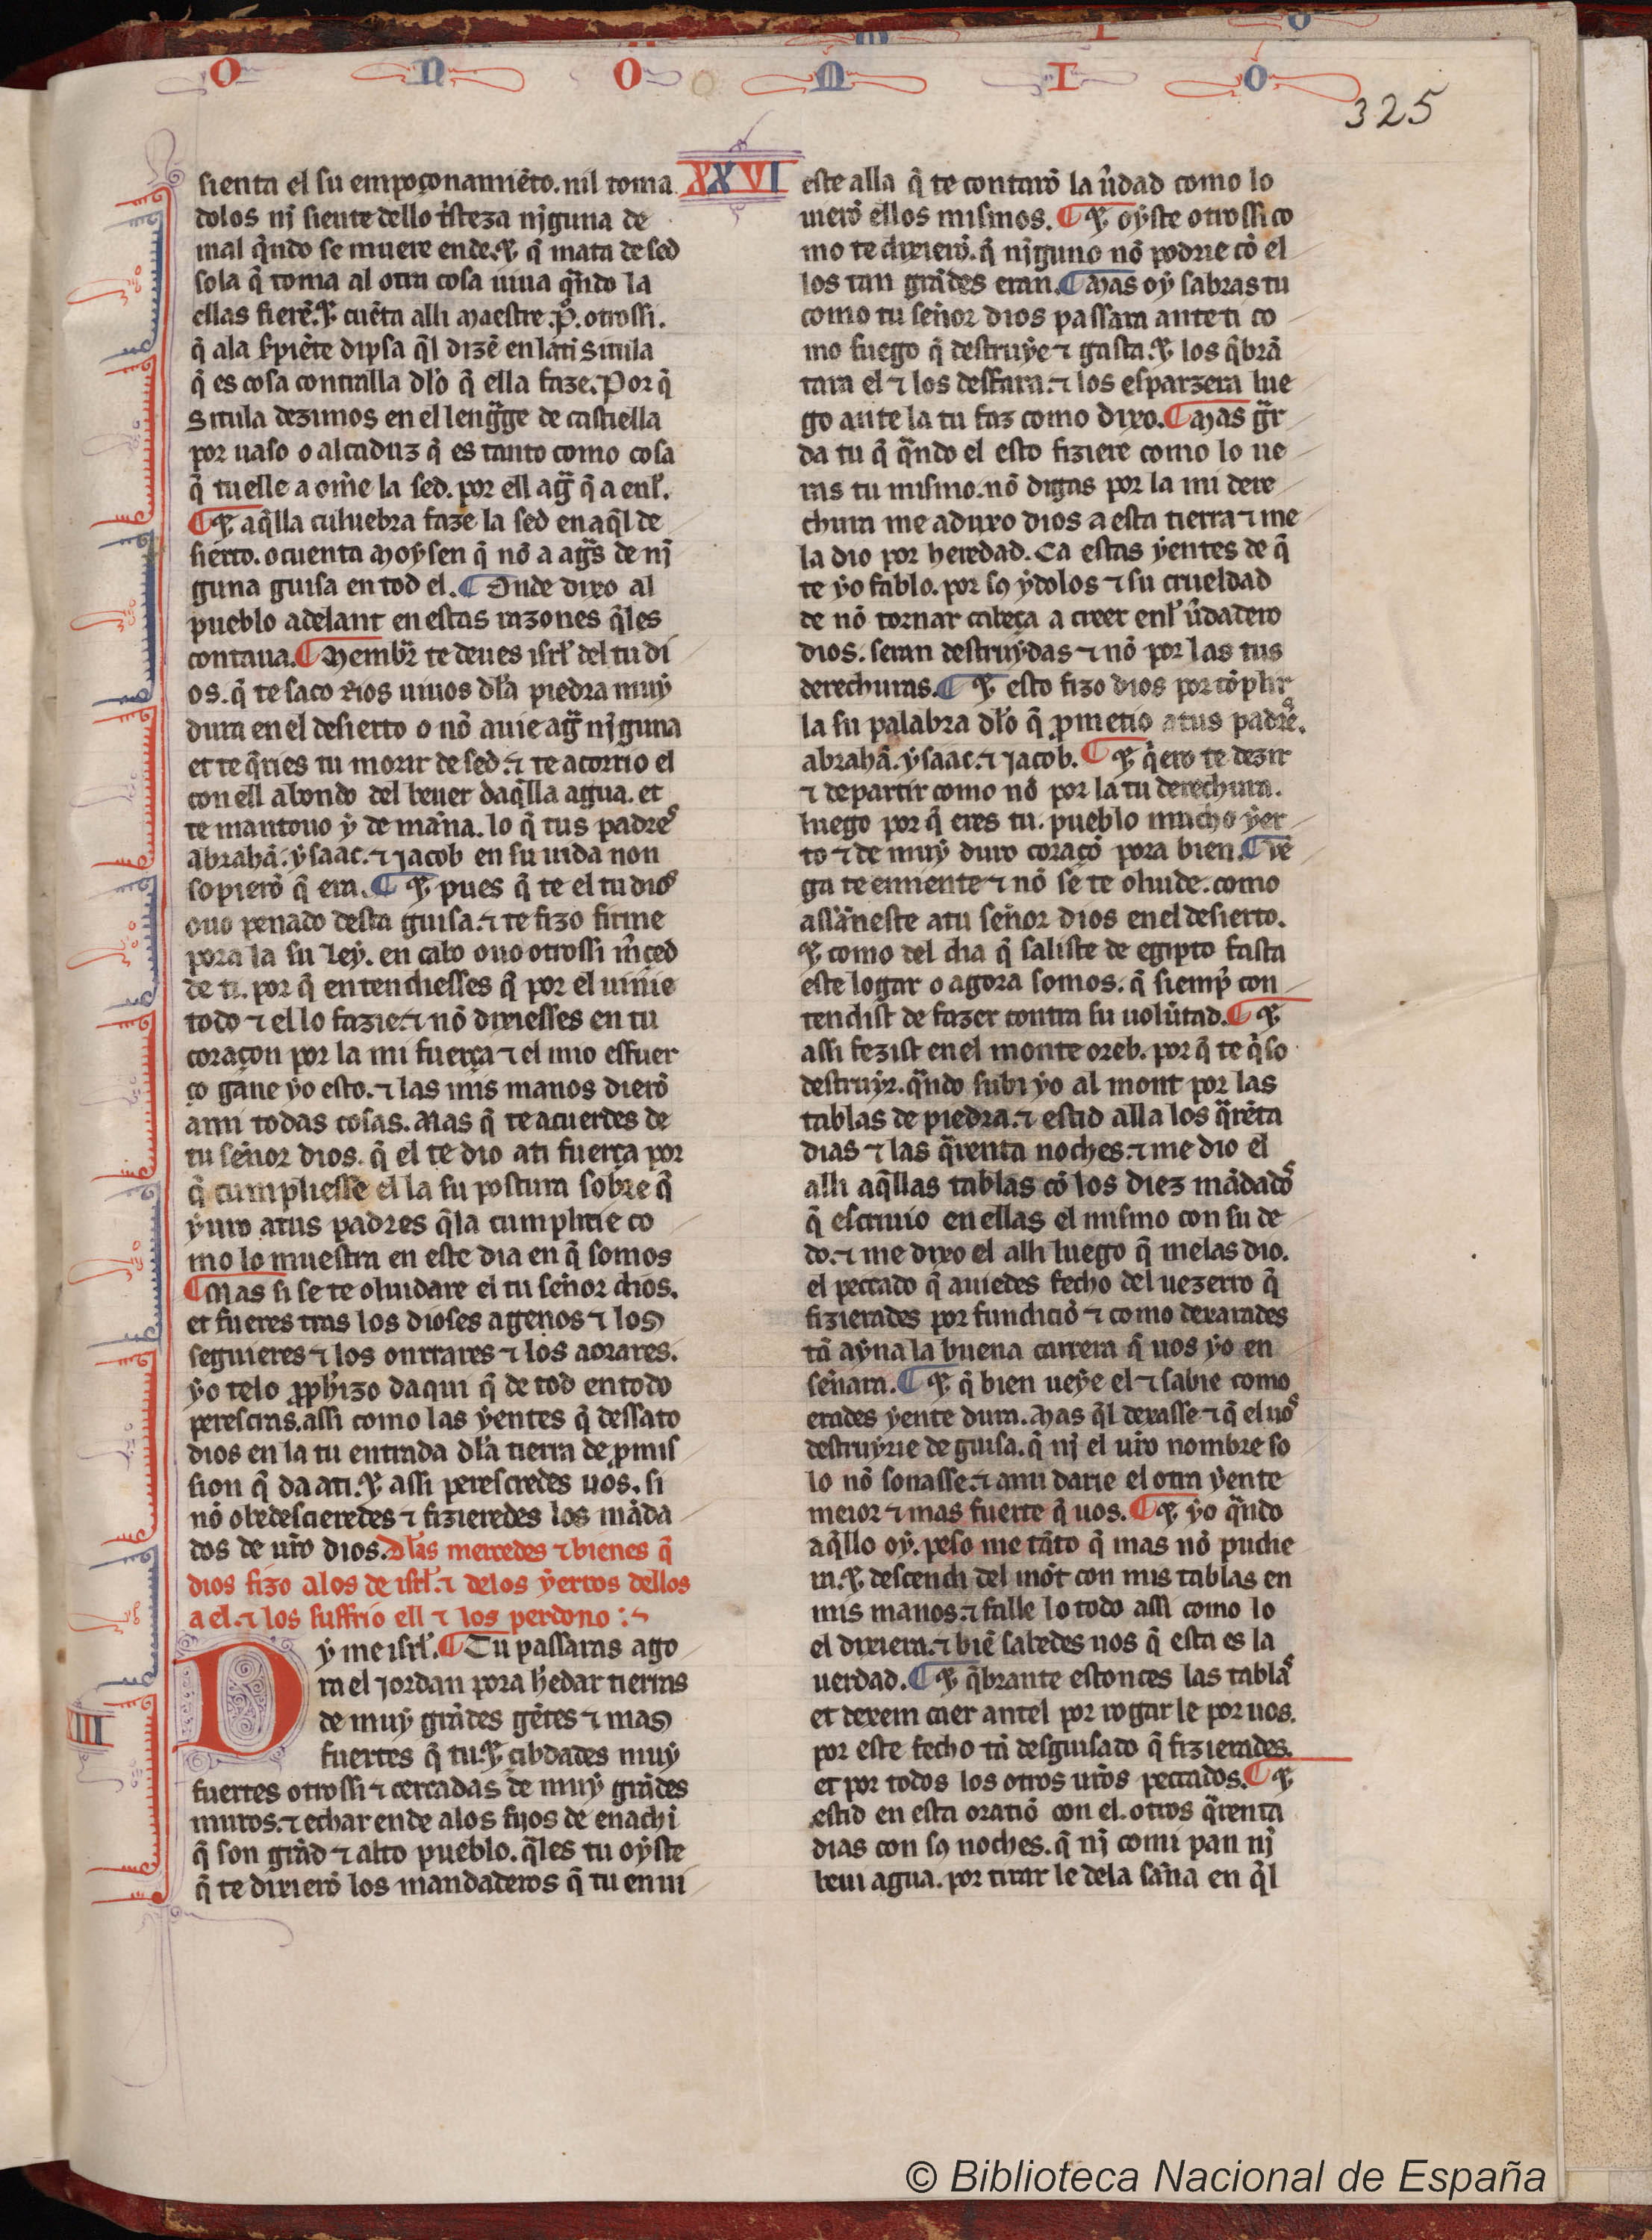 O N O M I O
325
XXVI
sienta el su empoçonamiẽto. nil toma
dolos nj siente dello tͥsteza njguna de
mal q̃ndo se muere ende. ⁊ q̃ mata de sed
sola q̃ toma al otra cosa uiua q̃ndo la
ellas fierẽ. ⁊ cuẽta alli maestre .P̃. otrossi.
q̃ ala s̃piẽte dipsa q̃l dizẽ en latĩ Situla
q̃ es cosa contralla dl̃o q̃ ella faze. Por q̃
Situla dezimos en el lengũge de castiella
por uaso o alcaduz q̃ es tanto como cosa
q̃ tuelle a om̃e la sed. por ell ag̃ q̃ a enl̃.
¶ ⁊ aq̃lla culuebra faze la sed en aq̃l de
sierto. o cuenta moysen q̃ nõ a ag̃s de nj
guna guisa en tod el. ¶ Onde dixo al
pueblo adelant en estas razones q̃les
contaua. ¶ Membr̃ te deues isrl̃ del tu di
os. q̃ te saco rios uiuos dl̃a piedra muy
dura en el desierto o nõ auie ag̃ njguna
et te q̃ries tu morir de sed. ⁊ te acorrio el
con ell abondo del beuer daq̃lla agua. et
te mantouo y de mãna. lo q̃ tus padres
abrahã. ysaac. ⁊ jacob en su uida non
sopierõ q̃ era. ¶ ⁊ pues q̃ te el tu dios
ouo penado desta guisa. ⁊ te fizo firme
pora la su ley. en cabo ouo otrossi m̃ced
de ti. por q̃ entendiesses q̃ por el uinie
todo ⁊ el lo fazie. ⁊ nõ dixiesses en tu
coraçon por la mi fuerça ⁊ el mio esfuer
ço gane yo esto. ⁊ las mis manos dierõ
ami todas cosas. Mas q̃ te acuerdes de
tu sẽnor dios. q̃ el te dio ati fuerça por
q̃ cumpliesse el la su postura sobre q̃
yuro atus padres q̃la cumplirie co
mo lo muestra en este dia en q̃ somos
¶ Mas si se te oluidare el tu sẽnor dios.
et fueres tras los dioses agenos ⁊ los
seguieres ⁊ los onrrares ⁊ los aorares.
yo telo p̃ph̃izo daqui q̃ de tod en todo
perescras. assi como las yentes q̃ dessato
dios en la tu entrada dl̃a tierra de p̃mis
sion q̃ da ati. ⁊ assi perescredes uos. si
nõ obedescieredes ⁊ fizieredes los mãda
dos de ur̃o dios. Dl̃as mercedes ⁊ bienes q̃
dios fizo alos de isrl̃. ⁊ delos yerros dellos
a el. ⁊ los suffrio ell ⁊ los perdono :~
XIII
Oy me isrl̃. ¶ Tu passaras ago
ra el jordan pora h̃edar tierras
de muy grãdes gẽtes ⁊ mas
fuertes q̃ tu. ⁊ cibdades muy
fuertes otrossi ⁊ cercadas de muy grãdes
muros. ⁊ echar ende alos fijos de enachi
q̃ son grãd ⁊ alto pueblo. q̃les tu oyste
q̃ te dixierõ los mandaderos q̃ tu enui
este alla q̃ te contarõ la ũdad como lo
uierõ ellos mismos. ¶ ⁊ oyste otrossi co
mo te dixierõ. q̃ njguno nõ podrie cõ el
los tan grãdes eran. ¶ Mas oy sabras tu
como tu sẽnor dios passara ante ti co
mo fuego q̃ destruye ⁊ gasta. ⁊ los q̃brã
tara el ⁊ los desfara. ⁊ los esparzera lue
go ante la tu faz como dixo. ¶ Mas g̃r
da tu q̃ q̃ndo el esto fiziere como lo ue
ras tu mismo. nõ digas por la mi dere
chura me aduxo dios a esta tierra ⁊ me
la dio por heredad. Ca estas yentes de q̃
te yo fablo. por sꝯ ydolos ⁊ su crueldad
de nõ tornar cabeça a creer enl̃ ũdadero
dios. seran destruydas ⁊ nõ por las tus
derechuras. ¶ ⁊ esto fizo dios por cõplir
la su palabra dl̃o q̃ p̃metio atus padres.
abrahã. ysaac. ⁊ jacob. ¶ ⁊ q̃ero te dezir
⁊ departir como nõ por la tu derechura.
luego por q̃ eres tu. pueblo mucho yer
to ⁊ de muy duro coraçõ pora bien. ¶ Vẽ
ga te emiente ⁊ nõ se te oluide. como
assãneste atu sẽnor dios en el desierto.
⁊ como del dia q̃ saliste de egipto fasta
este logar o agora somos. q̃ siemp̃ con
tendist de fazer contra su uolũtad. ¶ ⁊
assi fezist en el monte oreb. por q̃ te q̃so
destruyr. q̃ndo subi yo al mont por las
tablas de piedra. ⁊ estid alla los q̃rẽta
dias ⁊ las q̃renta noches. ⁊ me dio el
alli aq̃llas tablas cõ los diez mãdados
q̃ escriuio en ellas el mismo con su de
do. ⁊ me dixo el alli luego q̃ melas dio.
el peccado q̃ auiedes fecho del uezerro q̃
fizierades por fundiciõ ⁊ como dexarades
tã ayna la buena carrera q̃ uos yo en
sẽnara. ¶ ⁊ q̃ bien ueye el ⁊ sabie como
erades yente dura. Mas q̃l dexasse ⁊ q̃ el uos
destruyrie de guisa. q̃ nj el ur̃o nombre so
lo nõ sonasse. ⁊ ami darie el otra yente
meior ⁊ mas fuerte q̃ uos. ¶ ⁊ yo q̃ndo
aq̃llo oy. peso me tãto q̃ mas nõ pudie
ra. ⁊ descendi del mõt con mis tablas en
mis manos. ⁊ falle lo todo assi como lo
el dixiera. ⁊ biẽ sabedes uos q̃ esta es la
uerdad. ¶ ⁊ q̃brante estonces las tablas
et dexem caer antel por rogar le por uos.
por este fecho tã desguisado q̃ fizierades.
et por todos los otros ur̃os peccados. ¶ ⁊
estid en esta oratiõ con el. otros q̃renta
dias con sꝯ noches. q̃ nj comi pan nj
beui agua. por tirar le dela sãna en q̃l
© Biblioteca Nacional de España